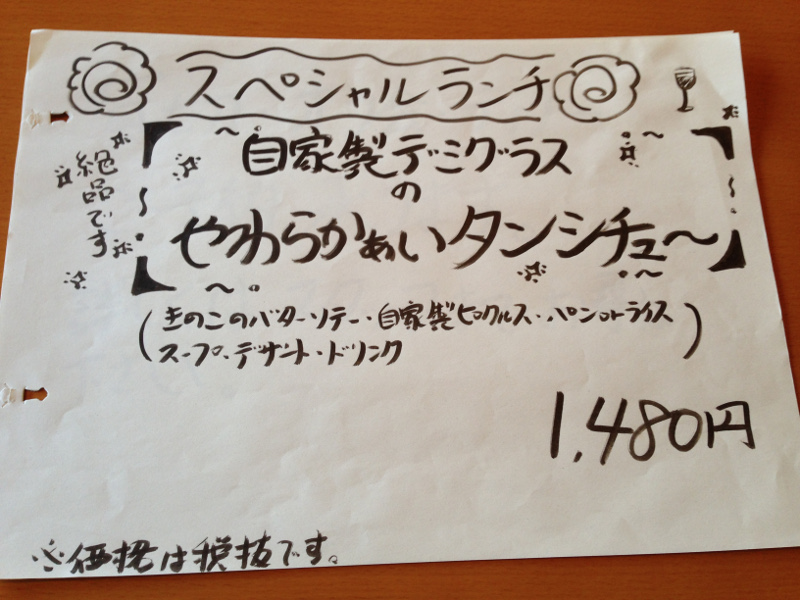 スペシャルランチ
絶品です
自家製デミグラス
の
やわらかぁいタンシチュ〜
(きのこのバターソテー・自家製ピクルス・パンorライス
スープ・デザート・ドリンク)
1,480円
※価格は税抜です。